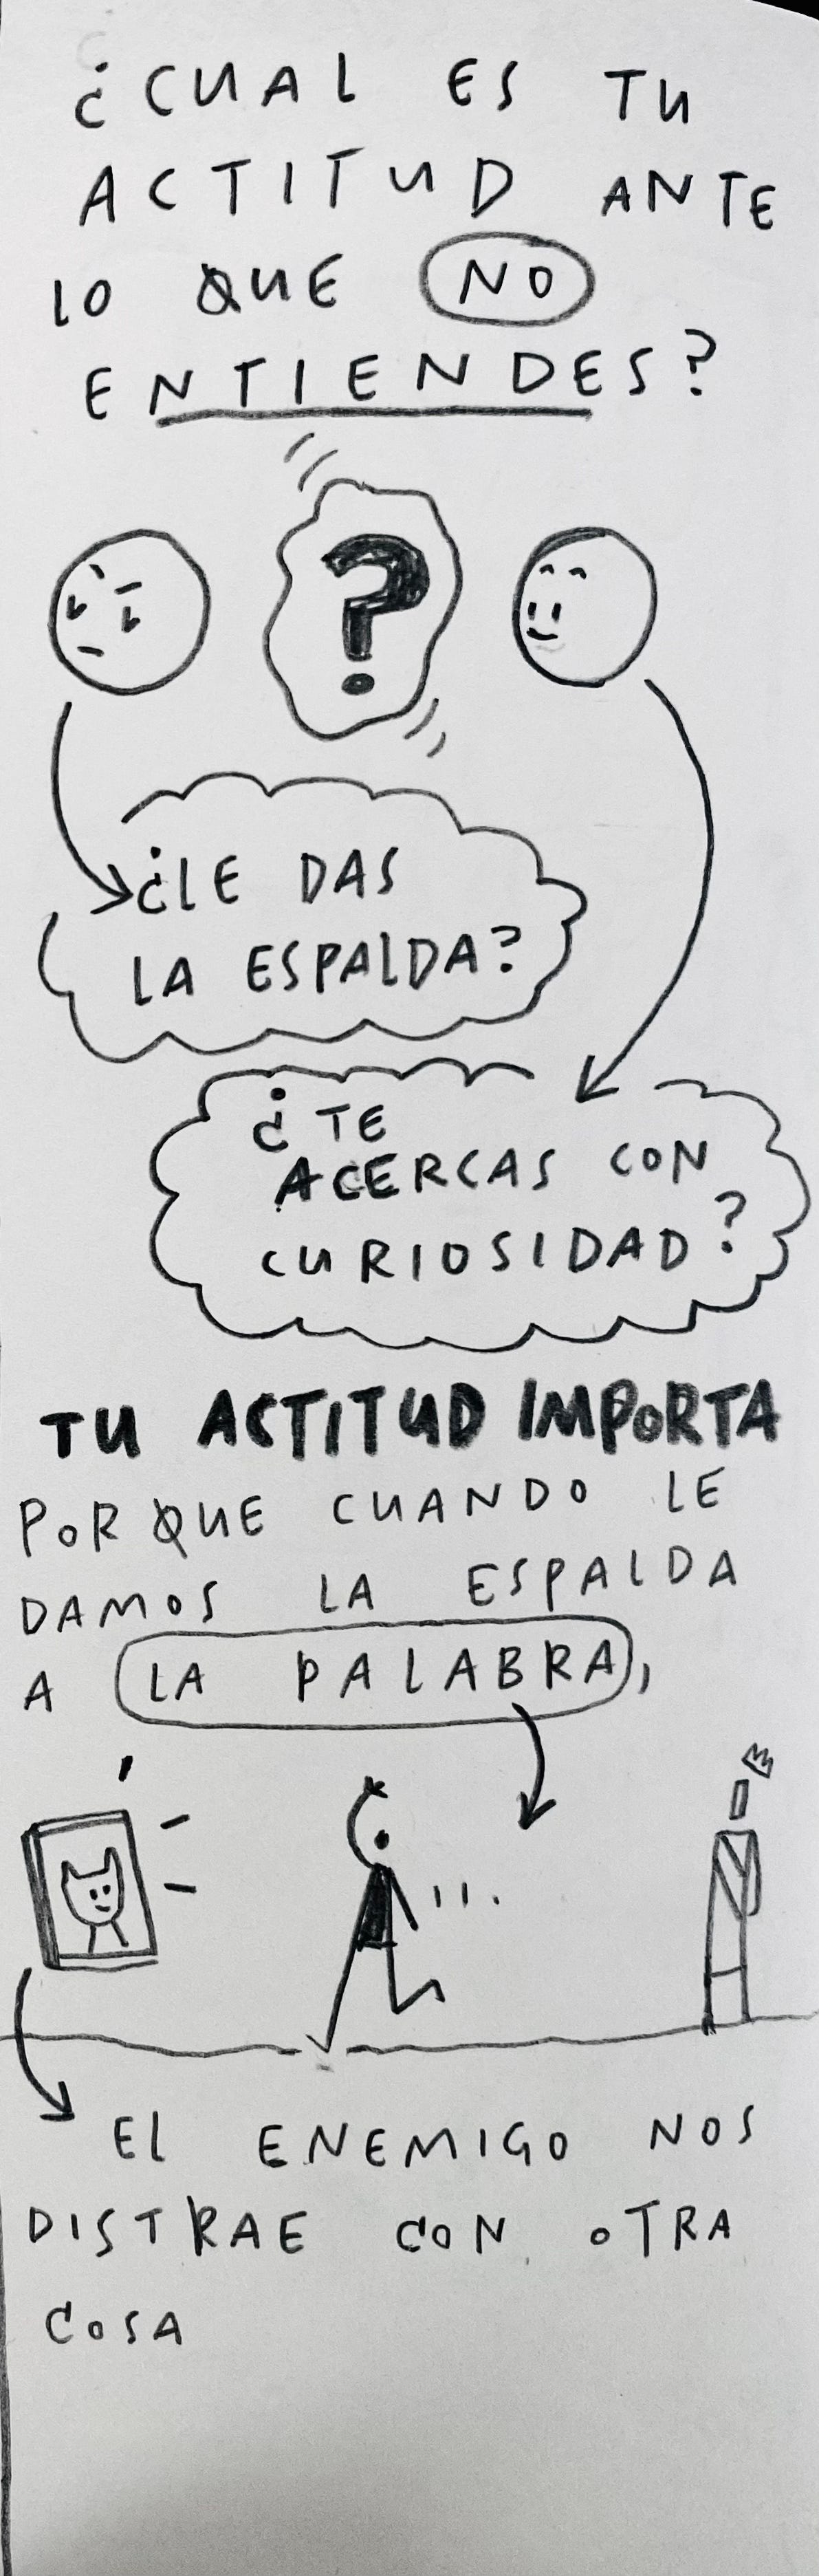 ¿CUAL ES TU
ACTITUD ANTE
LO QUE NO
ENTIENDES?
?
¿LE DAS
LA ESPALDA?
¿TE
ACERCAS CON
CURIOSIDAD?
TU ACTITUD IMPORTA
PORQUE CUANDO LE
DAMOS LA ESPALDA
A LA PALABRA,
EL ENEMIGO NOS
DISTRAE CON OTRA
COSA